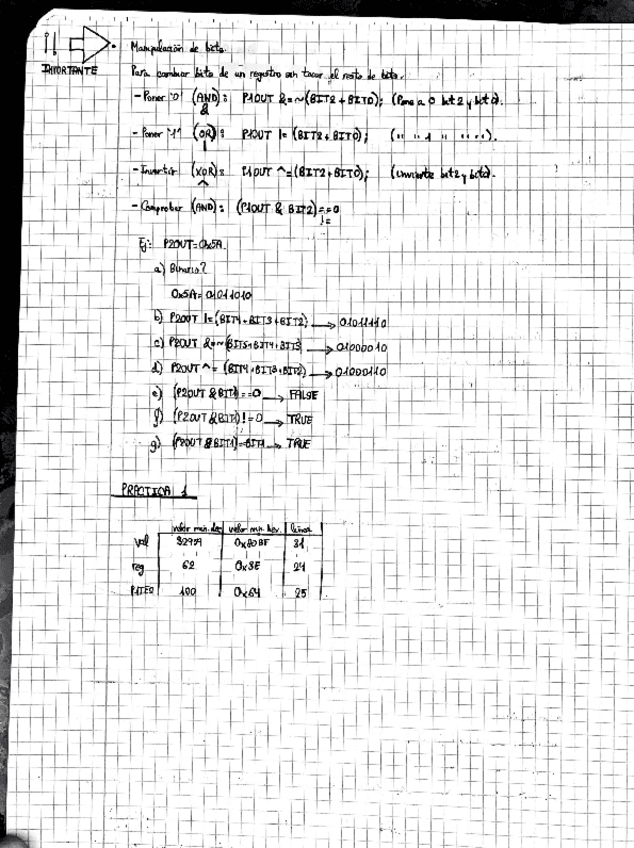 ¡¡ Manipulación de bits.
IMPORTANTE
Para cambiar bits de un registro sin tocar el resto de bits.
- Poner "0" (AND): P1OUT &=~(BIT2 + BIT0); (Pone a 0 bit2 y bit0).
&
- Poner "1" (OR): P1OUT |= (BIT2 + BIT0); (" " 1 " " " ").
|
- Invertir (XOR): P1OUT ^= (BIT2 + BIT0); (invierte bit2 y bit0).
^
- Comprobar (AND): (P1OUT & BIT2) == 0
!=
Ej: P2OUT = 0x5A.
a) Binario?
0x5A = 01011010
b) P2OUT |= (BIT4 + BIT3 + BIT2) → 01011110
c) P2OUT &=~(BIT5+BIT4+BIT3) → 01000010
d) P2OUT ^= (BIT4+BIT3+BIT2) → 01000110
e) (P2OUT & BIT1) == 0 → FALSE
f) (P2OUT & BIT1) != 0 → TRUE
g) (P2OUT & BIT1) = BIT1 → TRUE
PRACTICA 1
valor min. dec valor min. hex. línea
val 0x80BF 31
reg 62 0x3E 24
100 0x64 25